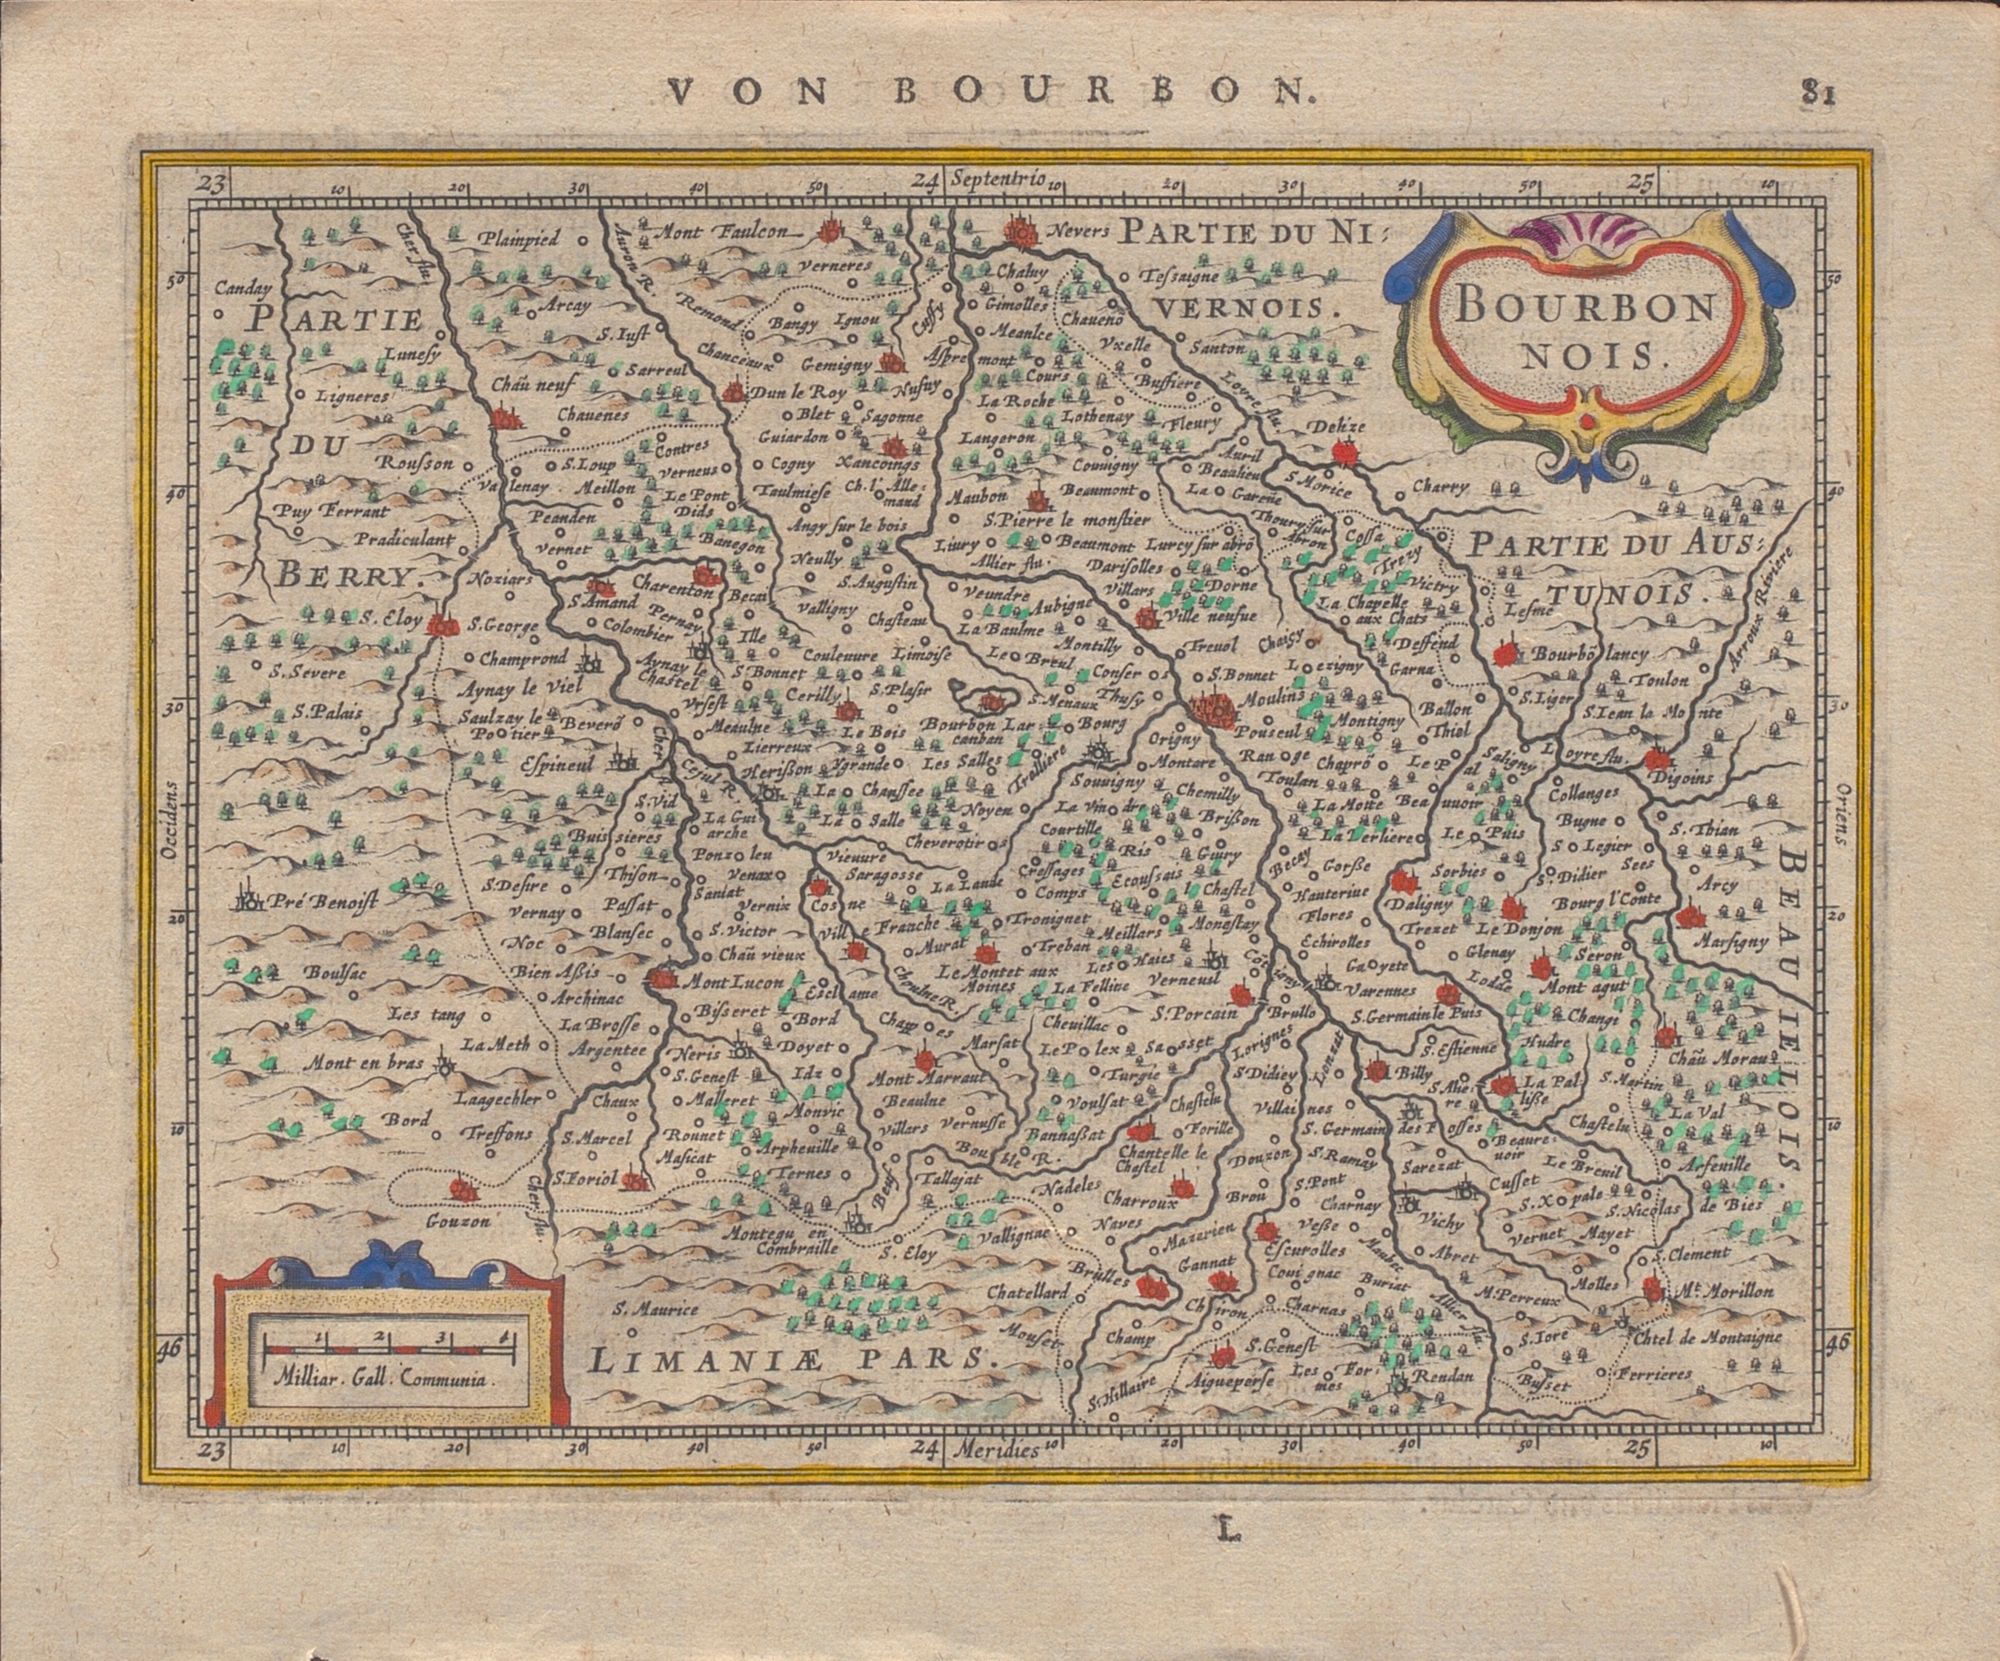 VON BOURBON.
81
23 10 20 30 40 50 24 Septentrio 10 20 30 40 50 25 10
BOURBON
NOIS.
PARTIE DU NI:
VERNOIS.
PARTIE
DU
BERRY.
PARTIE DU AUS:
TUNOIS.
BEAUIELOIS.
LIMANIÆ PARS.
Occidens
Oriens
50
40
30
20
10
46
50
40
30
20
10
46
Plainpied
Mont Faulcon
Nevers
Cher flu.
Auron R.
Verneres
Chaluy
Tessaigne
Canday
Arcay
Remond
Bangy
Ignou
Cuffy
Gimolles
Chaueno
S. Iust
Meanlce
Uxelle
Santon
Lunesy
Chanceaux
Gemigny
Aspremont
Sarreul
Cours
Bussiere
Chau neuf
Dun le Roy
Nusuy
La Roche
Loyre flu.
Ligneres
Chauenes
Blet
Sagonne
Lothenay
Fleury
Detize
Guiardon
Langeron
Contres
Auril
Rousson
S. Loup
Verneus
Cogny
Xancoings
Couuigny
Beaulieu
S. Morice
Charry
Valenay
Meillon
Le Pont
Dids
Taulmiese
Ch. l'Allemand
Maubon
Beaumont
La Garene
Puy Ferrant
Peanden
Angy sur le bois
S. Pierre le monstier
Thoury sur
Abron
Cossa
Pradiculant
Vernet
Banegon
Neully
Liury
Beaumont
Lurcy sur abro
Trezy
Allier flu.
Darisolles
Noziars
Charenton
S. Augustin
Victry
S. Amand
Becai
Veundre
Villars
Dorne
Pernay
Valligny
Aubigne
La Chapelle
aux Chats
Lesme
S. Eloy
S. George
Colombier
Ille
Chasteau
La Baulme
Ville neufue
Montilly
Treuol
Chaisy
Deffend
Champrond
Aynay le
Chastel
Couleuure
Limoise
Le Breul
Loezigny
Bourbo lancy
Arroux Riviere
S. Severe
S. Bonnet
Conser
S. Bonnet
Garna
Toulon
Aynay le Viel
Cerilly
S. Plasir
Thusy
Moulins
S. Liger
S. Palais
Vrsest
S. Menaux
Ballon
Saulzay le
Potier
Bevero
Meaulne
Le Bois
Bourbon Lar
canban
Bourg
Montigny
S. Iean la Monte
Origny
Pouseul
Thiel
Lierreux
Espineul
Herisson
Ygrande
Les Salles
Trolliere
Souuigny
Montare
Range
Chapro
Le Pal
Saligny
Loyre flu.
Digoins
Toulan
S. Vid
La Chaussee
Chemilly
La Motte
Beauuoir
Collanges
La Guiarche
La Salle
Noyen
La Vindre
Brisson
Buissieres
Courtille
La Verliere
Le Puis
Bugne
S. Thian
Cheverotiro
Ris
Giury
Becay
S. Legier
Ponzoleu
Vieuure
Gorsse
Sees
Thison
Venax
Saragosse
Cressages
Sorbies
S. Didier
S. Desire
Sanlat
La Lande
Comps
Ecoussais
Chastel
Hauteriue
Arcy
Pré Benoist
Passat
Vernix
Cosne
Daligny
Bourg l'Conte
Vernay
Franche
Tronignet
Monestay
Flores
Blansec
S. Victor
Ville
Meillars
Trezet
Le Donjon
Marsigny
Noc
Murat
Treban
Echirolles
Chau vieux
Glenay
Seron
Boussac
Bien Assis
Le Montet aux
Moines
Les Haies
Gaoyete
Mont Lucon
Verneuil
Mont agut
Archinac
Esclame
La Felline
Varennes
Lodde
Les tang
Bisseret
S. Porcain
S. Germain le Puis
La Brosse
Bord
Chappes
Cheuillac
Brullo
Changi
La Meth
Argentee
Neris
Doyet
Marsat
Le Polex
Sasset
Lorignes
S. Estienne
Hudre
Chau Morau
Mont en bras
S. Genest
Idz
Mont Marraut
Turgie
S. Didiey
Lonzat
Billy
La Palisse
S. Martin
Laagechler
Chaux
Malleret
Monvic
Beaulne
Voulsat
Chastelu
Villaines
La Val
Bord
Treffons
S. Marcel
Rounet
Villars
Vernusse
Bannassat
Forille
S. Germain des Fosses
Chastelu
Arpheuille
Masicat
Bouble R.
Chantelle le
Chastel
Beaure:
uoir
Douzon
S. Ramay
Sarezat
Le Breuil
Arfeuille
S. Foriol
Ternes
Tallajat
Nadeles
S. Pont
Cusset
Beuf
Charroux
Brou
Charnay
S. Xopale
S. Nicolas
de Bies
Gouzon
Cher flu.
Montegu en
Combraille
Naves
Vichy
S. Eloy
Vallignac
Mazerien
Vesse
Vernet
Mayet
Escurolles
Abret
S. Clement
Brulles
Gannat
Couignac
Molles
Chatellard
Buriat
M. Perreux
Mt. Morillon
S. Maurice
Chiron
Charnas
Allier flu.
Mouset
Champ
S. Iore
Chtel de Montaigne
S. Genest
Aigueperse
Les Formes
Rendan
Busset
Ferrieres
S. Hillaire
1 2 3 4
Milliar. Gall. Communia.
23 10 20 30 40 50 24 Meridies 10 20 30 40 50 25 10
L